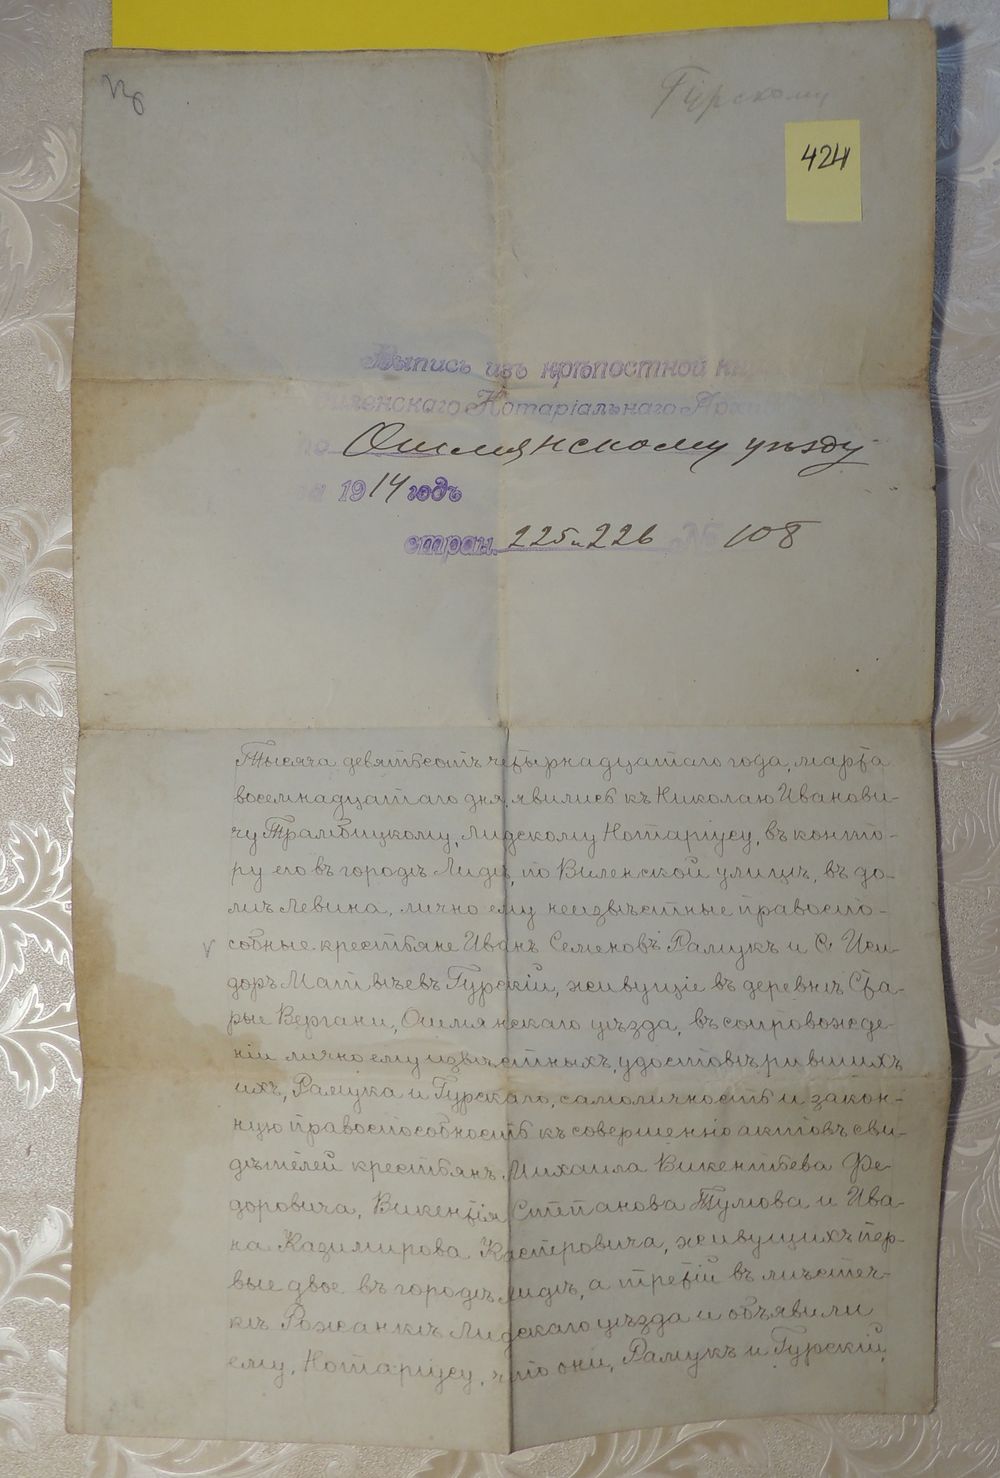 Гурскому
424
Выпись изъ крѣпостной
Виленскаго Нотаріальнаго Архива
по Ошмянскому уѣзду
на 1914 годъ
стран. 225 и 226 № 108
Тысяча девятьсотъ четырнадцатаго года, марта
восемнадцатаго дня, явились къ Николаю Иванови-
чу Трамбицкому, Лидскому Нотаріусу, въ конто-
ру его въ городѣ Лидѣ, по Виленской улицѣ, въ до-
мѣ Левина, лично ему неизвѣстные правоспо-
собные крестьяне Иванъ Семеновъ Рамукъ и Иси-
доръ Матвѣевъ Гурскій, живущіе въ деревнѣ Ста-
рые Вергани, Ошмянскаго уѣзда, въ сопровожде-
ніи лично ему извѣстныхъ, удостовѣрившихъ
ихъ, Рамука и Гурскаго, самоличность и закон-
ную правоспособность къ совершенію актовъ сви-
дѣтелей крестьянъ Михаила Викентьева Фе-
доровича, Викентія Степанова Тумова и Ива-
на Казимирова Кастровича, живущихъ пер-
вые двое въ городѣ Лидѣ, а третій въ мѣстеч-
кѣ Рожанкѣ Лидскаго уѣзда и объявили
ему, Нотаріусу, что они, Рамукъ и Гурскій,